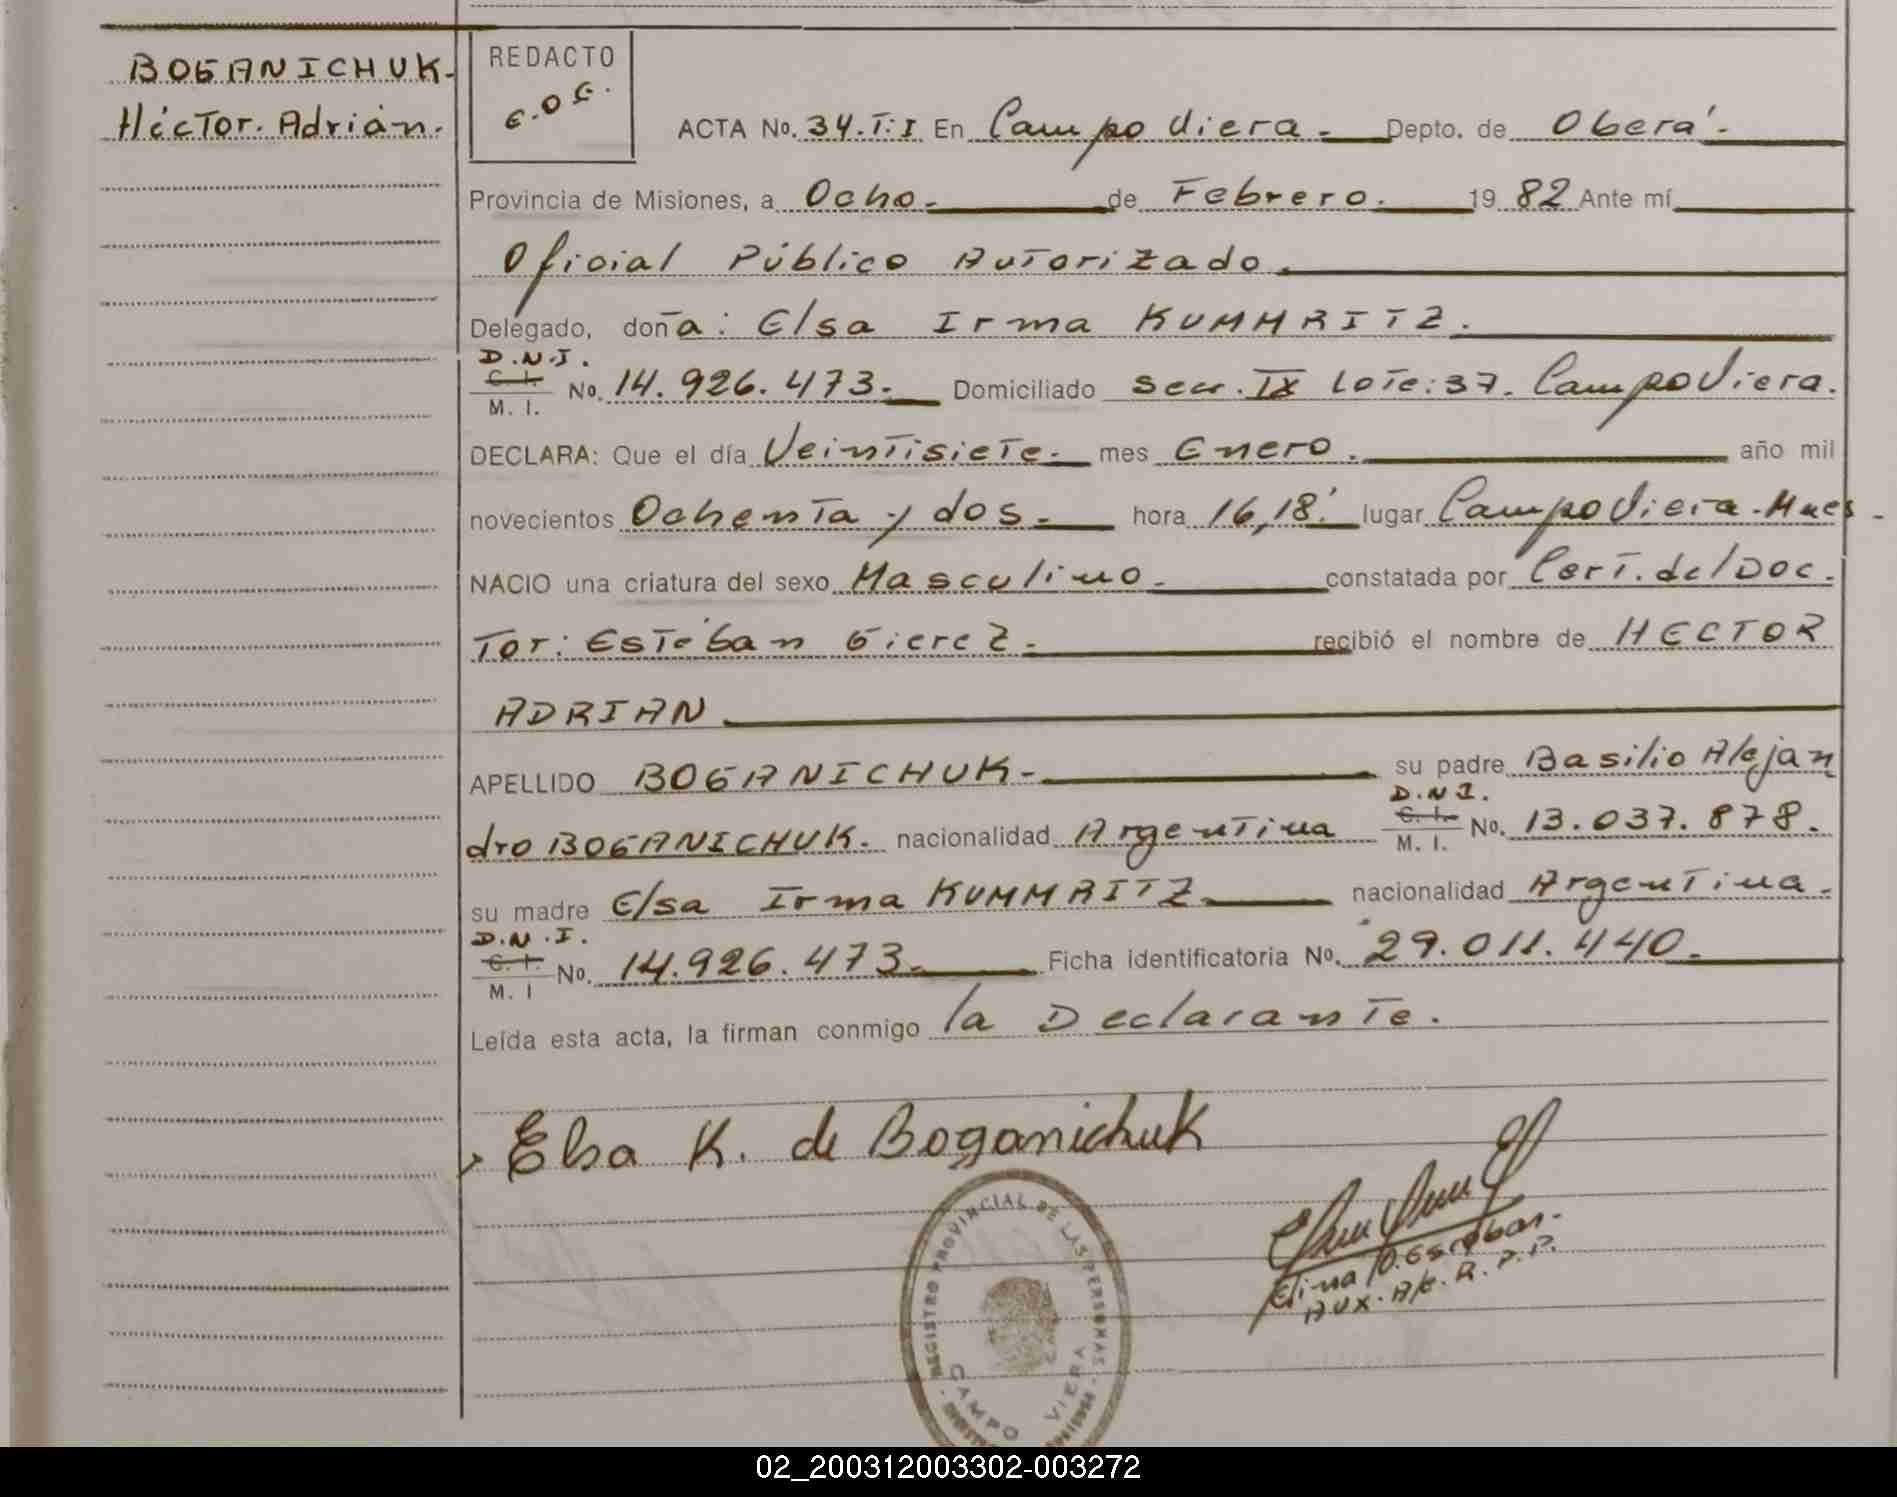 BOGANICHUK-
Héctor. Adrián.
REDACTO
E.O.E.
ACTA No. 34.T:I En Campo Viera.- Depto. de Oberá.-
Provincia de Misiones, a Ocho.- de Febrero. 1982 Ante mí
Oficial Público Autorizado.
Delegado, doña: Elsa Irma KUMMRITZ.
D.N.I.
C. I.
M. I.
No. 14.926.473.- Domiciliado Secc. IX Lote: 37. Campo Viera.
DECLARA: Que el día Veintisiete.- mes Enero. año mil
novecientos Ochenta y dos.- hora 16,18' lugar Campo Viera.-Mnes-
NACIO una criatura del sexo Masculino.- constatada por Cert. del Doc.
Tor: Estéban Gierez.- recibió el nombre de HECTOR
ADRIAN
APELLIDO BOGANICHUK.- su padre Basilio Alejan
dro BOGANICHUK. nacionalidad Argentina D.N.I.
C. I.
M. I.
No. 13.037.878.
su madre Elsa Irma KUMMRITZ nacionalidad Argentina.-
D.N.I.
C. I.
M. I
No. 14.926.473.- Ficha identificatoria No. 29.011.440.-
Leída esta acta, la firman conmigo la Declarante.
Elsa K. de Boganichuk
Elina D. Escobar.-
Aux. A/c. R. P. P.
REGISTRO PROVINCIAL DE LAS PERSONAS
CAMPO VIERA
02_200312003302-003272